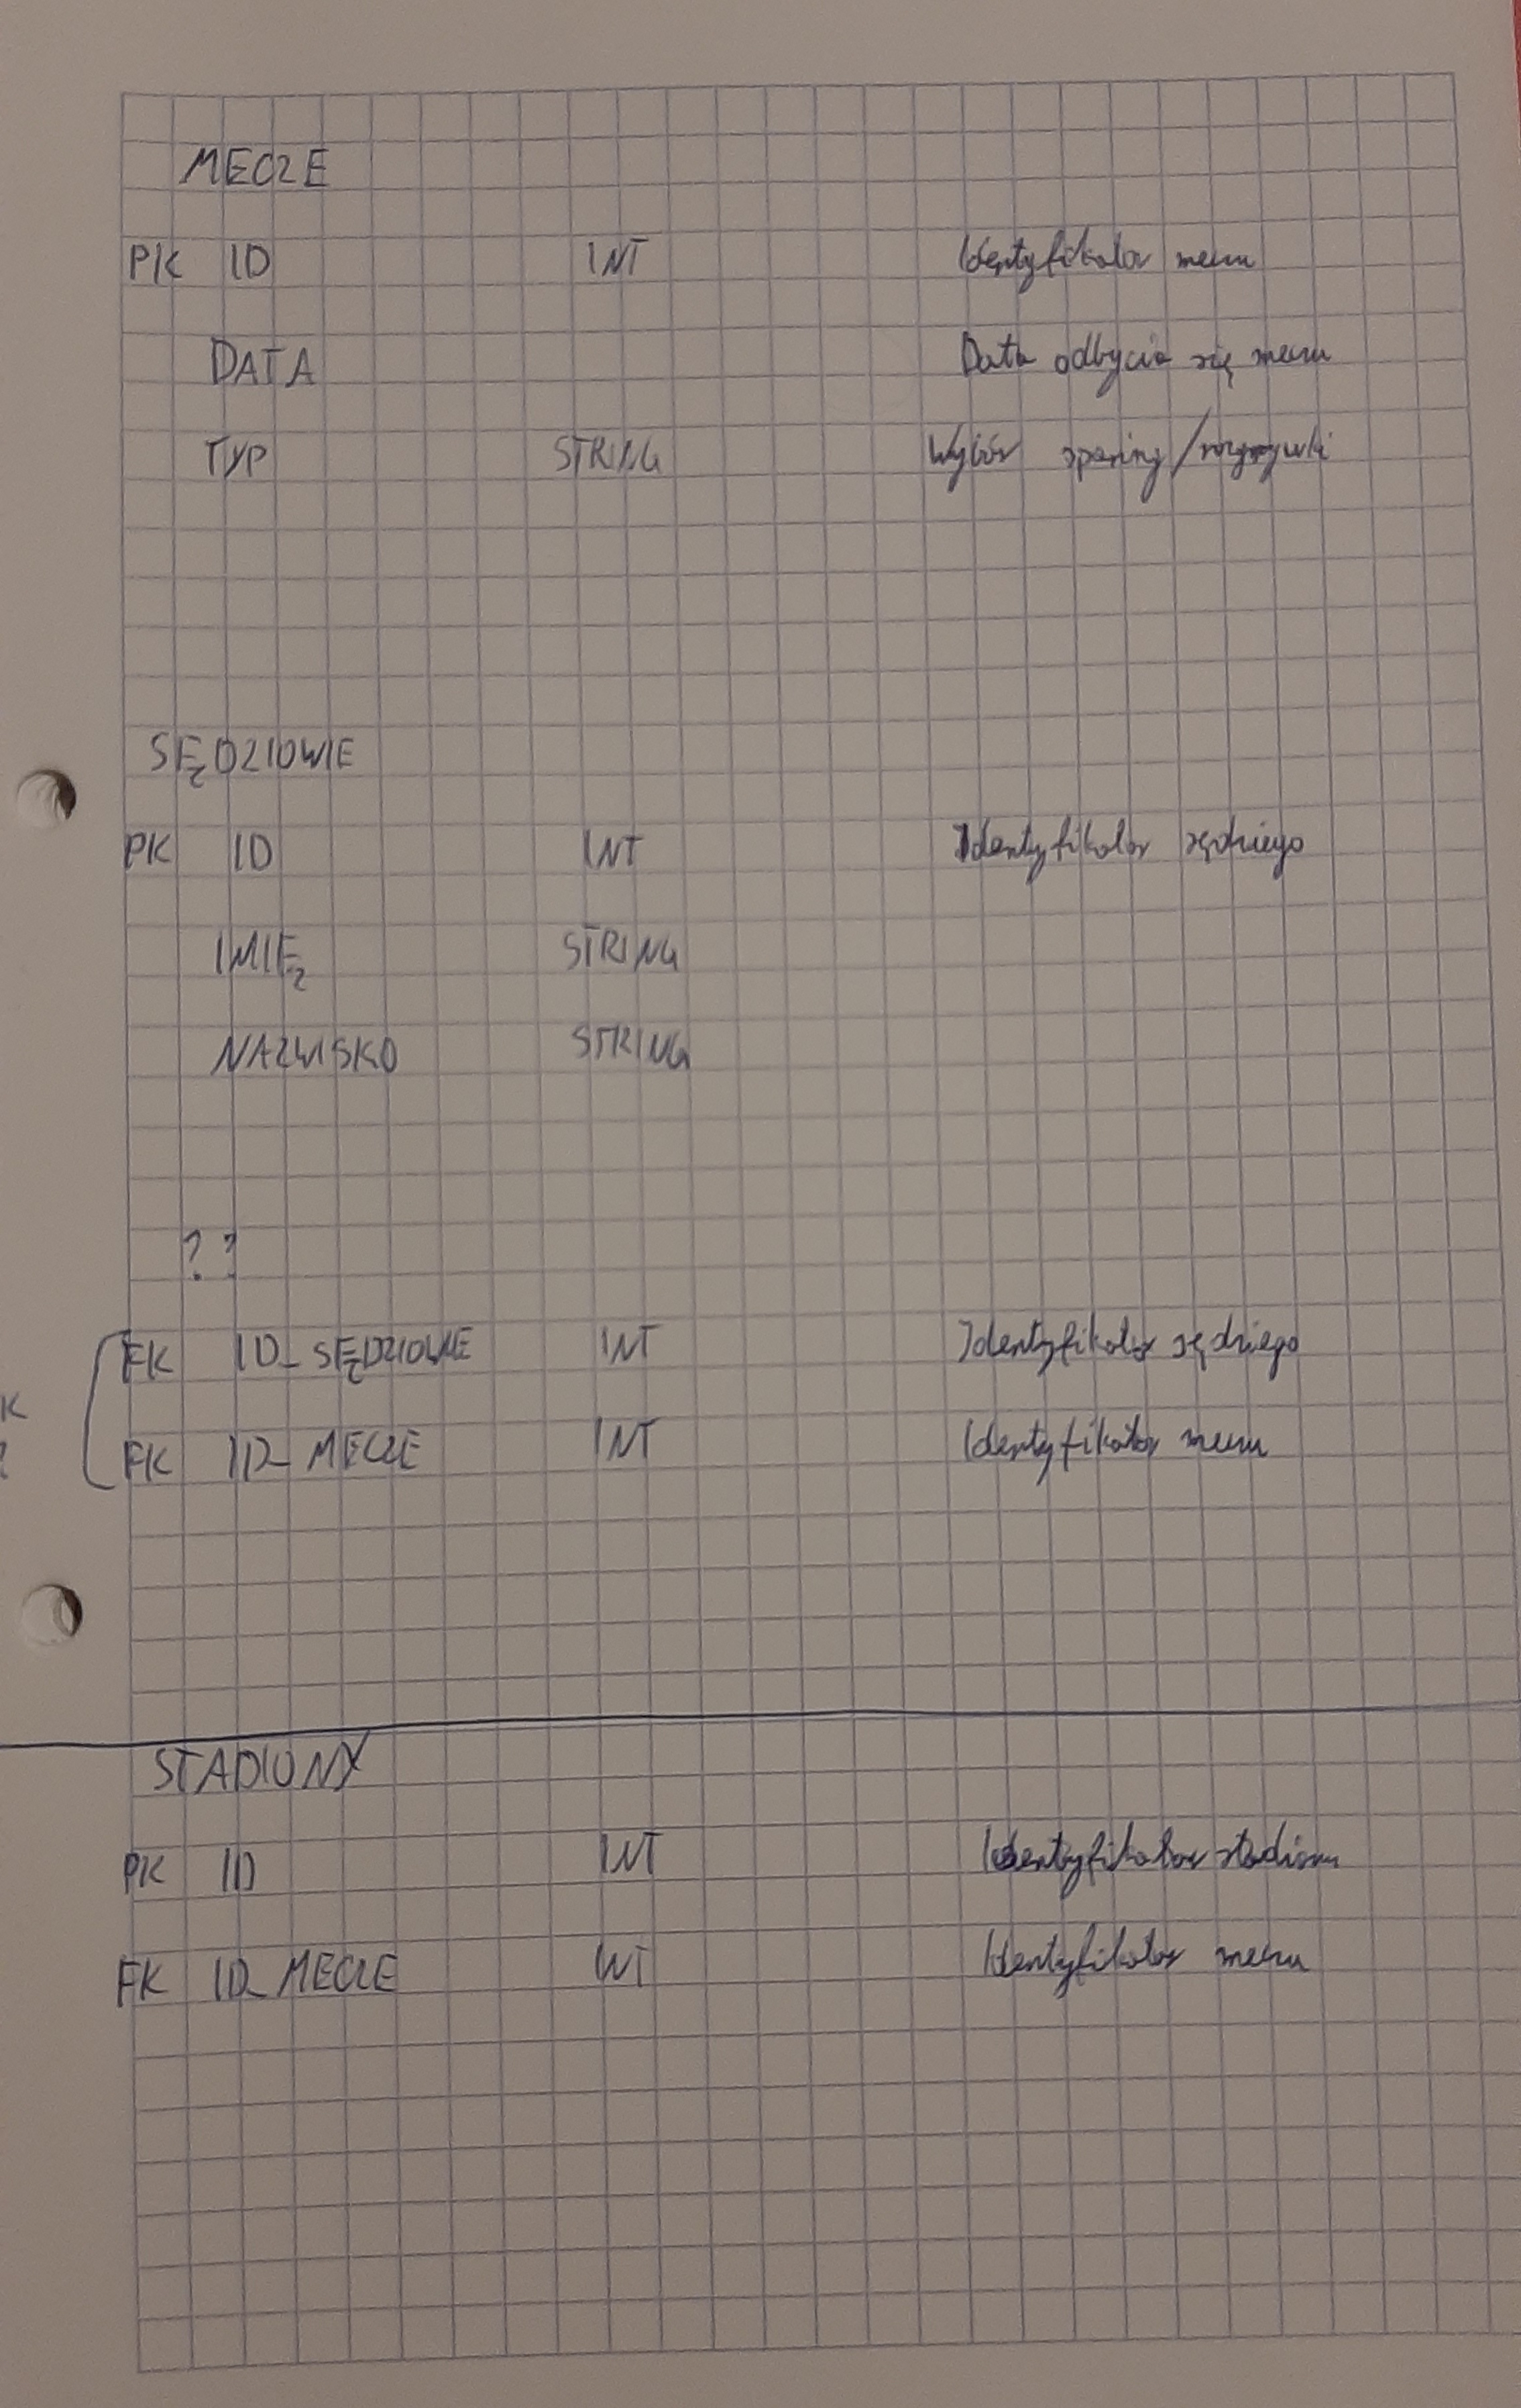 MECZE
PK ID INT Identyfikator meczu
DATA Data odbycia się meczu
TYP STRING Wybór sparing/rozgrywki
SĘDZIOWIE
PK ID INT Identyfikator sędziego
IMIĘ STRING
NAZWISKO STRING
? ?
FK ID_SĘDZIOWIE INT Identyfikator sędziego
K
FK ID_MECZE INT Identyfikator meczu
?
STADIONY
PK ID INT Identyfikator stadionu
FK ID_MECZE INT Identyfikator meczu